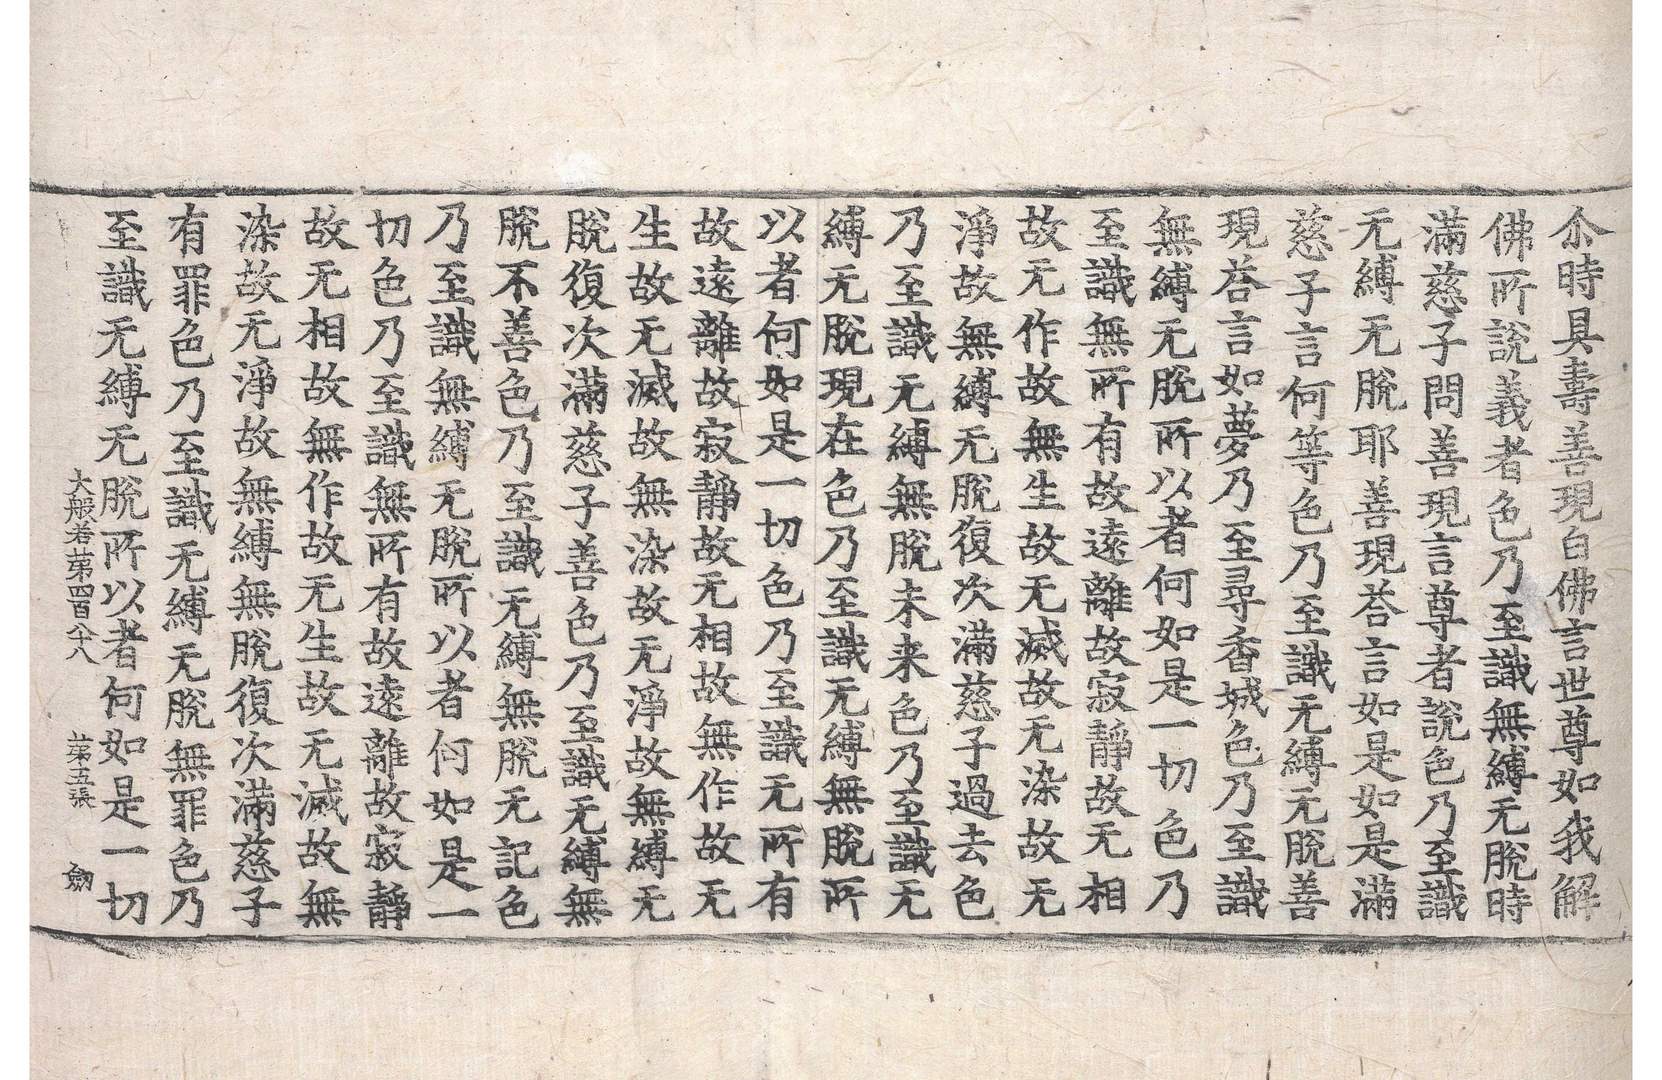 尒時具壽善現白佛言世尊如我解
佛所說義者色乃至識無縛无脫時
滿慈子問善現言尊者說色乃至識
无縛无脫耶善現荅言如是如是滿
慈子言何等色乃至識无縛无脫善
現荅言如夢乃至尋香城色乃至識
無縛无脫所以者何如是一切色乃
至識無所有故遠離故寂靜故无相
故无作故無生故无滅故无染故无
淨故無縛无脫復次滿慈子過去色
乃至識无縛無脫未来色乃至識无
縛无脫現在色乃至識无縛無脫所
以者何如是一切色乃至識无所有
故遠離故寂靜故无相故無作故无
生故无滅故無染故无淨故無縛无
脫復次滿慈子善色乃至識无縛無
脫不善色乃至識无縛無脫无記色
乃至識無縛无脫所以者何如是一
切色乃至識無所有故遠離故寂靜
故无相故無作故无生故无滅故無
染故无淨故無縛無脫復次滿慈子
有罪色乃至識无縛无脫無罪色乃
至識无縛无脫所以者何如是一切
大般若苐四百八八 苐五張 劒